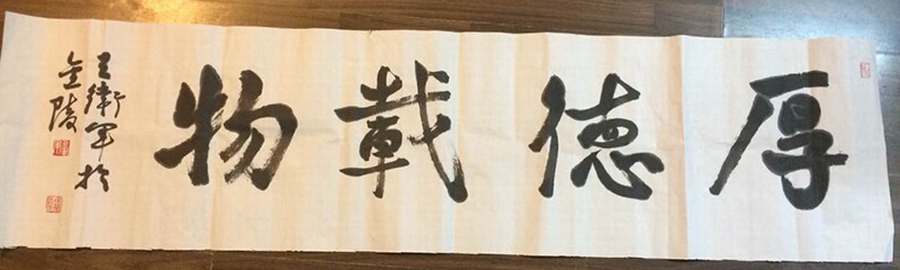 厚德載物
王衛軍於
金陵